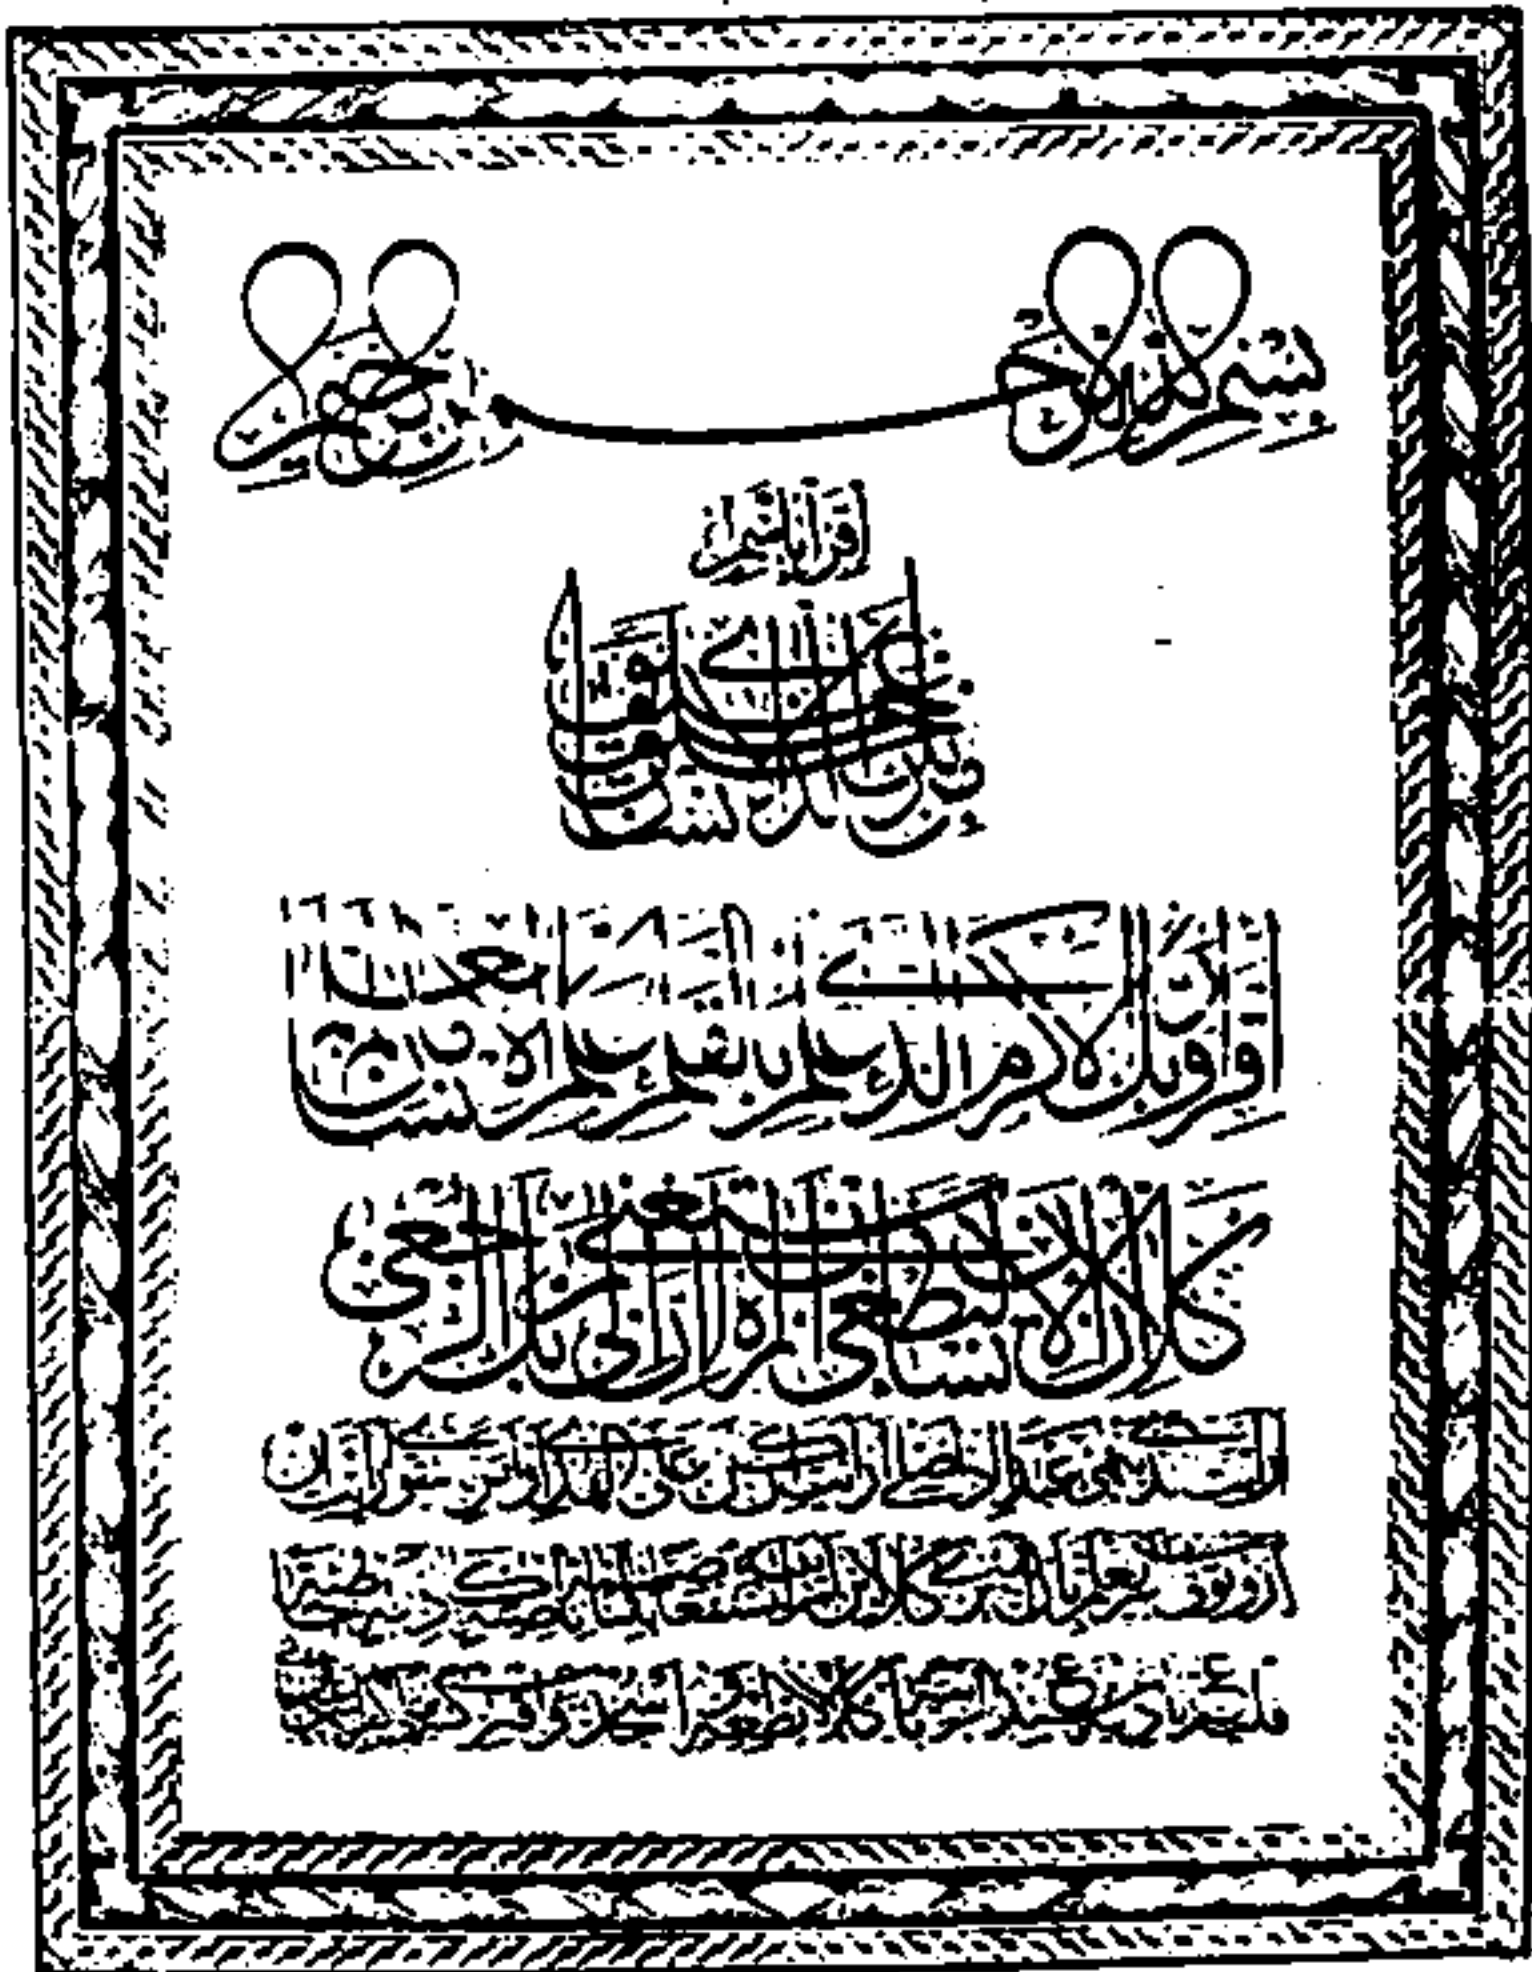 بسم الله الرحمن الرحيم
اقرأ باسم ر
بك الذي خلق خلق الإنسان من علق
اقرأ وربك الأكرم الذي علم بالقلم علم الإنسان ما لم يعلم
كلا إن الإنسان ليطغى أن رآه استغنى إن إلى ربك الرجعى
أرأيت الذي ينهى عبدا إذا صلى أرأيت إن كان على الهدى أو أمر بالتقوى أرأيت إن
كذب وتولى ألم يعلم بأن الله يرى كلا لئن لم ينته لنسفعا بالناصية ناصية كاذبة خاطئة
فليدع ناديه سندع الزبانية كلا لا تطعه واسجد واقترب